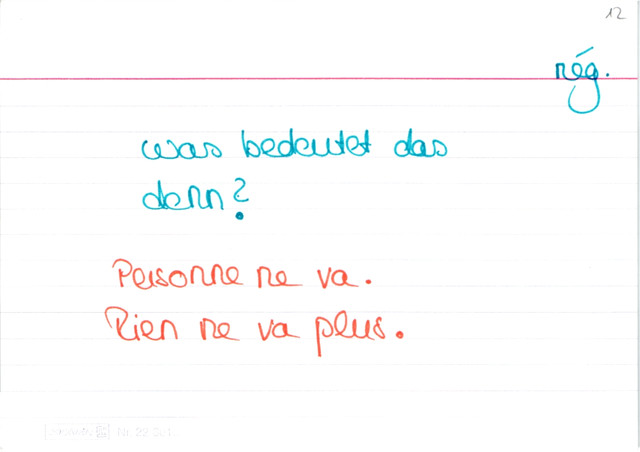 12
rég.
was bedeutet das
denn?
Personne ne va.
Rien ne va plus.